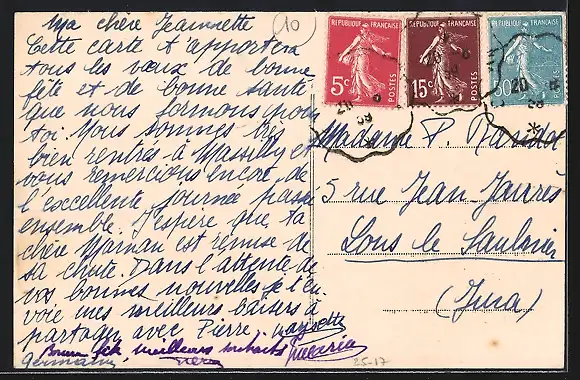 Ma chère Jeannette
Cette carte t'apportera
tous les vœux de bonne
fête et de bonne santé
que nous formons pour
toi. Nous sommes très
bien rentrés à Massilly et
vous remercions encore de
l'excellente journée passée
ensemble. J'espère que ta
chère Maman est remise de
sa chute. Dans l'attente de
vos bonnes nouvelles je t'en-
voie mes meilleurs baisers à
partager avec Pierre.
Bonne fête, meilleurs souhaits
Germaine
10
RÉPUBLIQUE FRANÇAISE
5c
POSTES
RÉPUBLIQUE FRANÇAISE
15c
POSTES
RÉPUBLIQUE FRANÇAISE
POSTES
Madame P.
5 rue Jean Jaurès
Lons le Saulnier
(Jura)
25-17